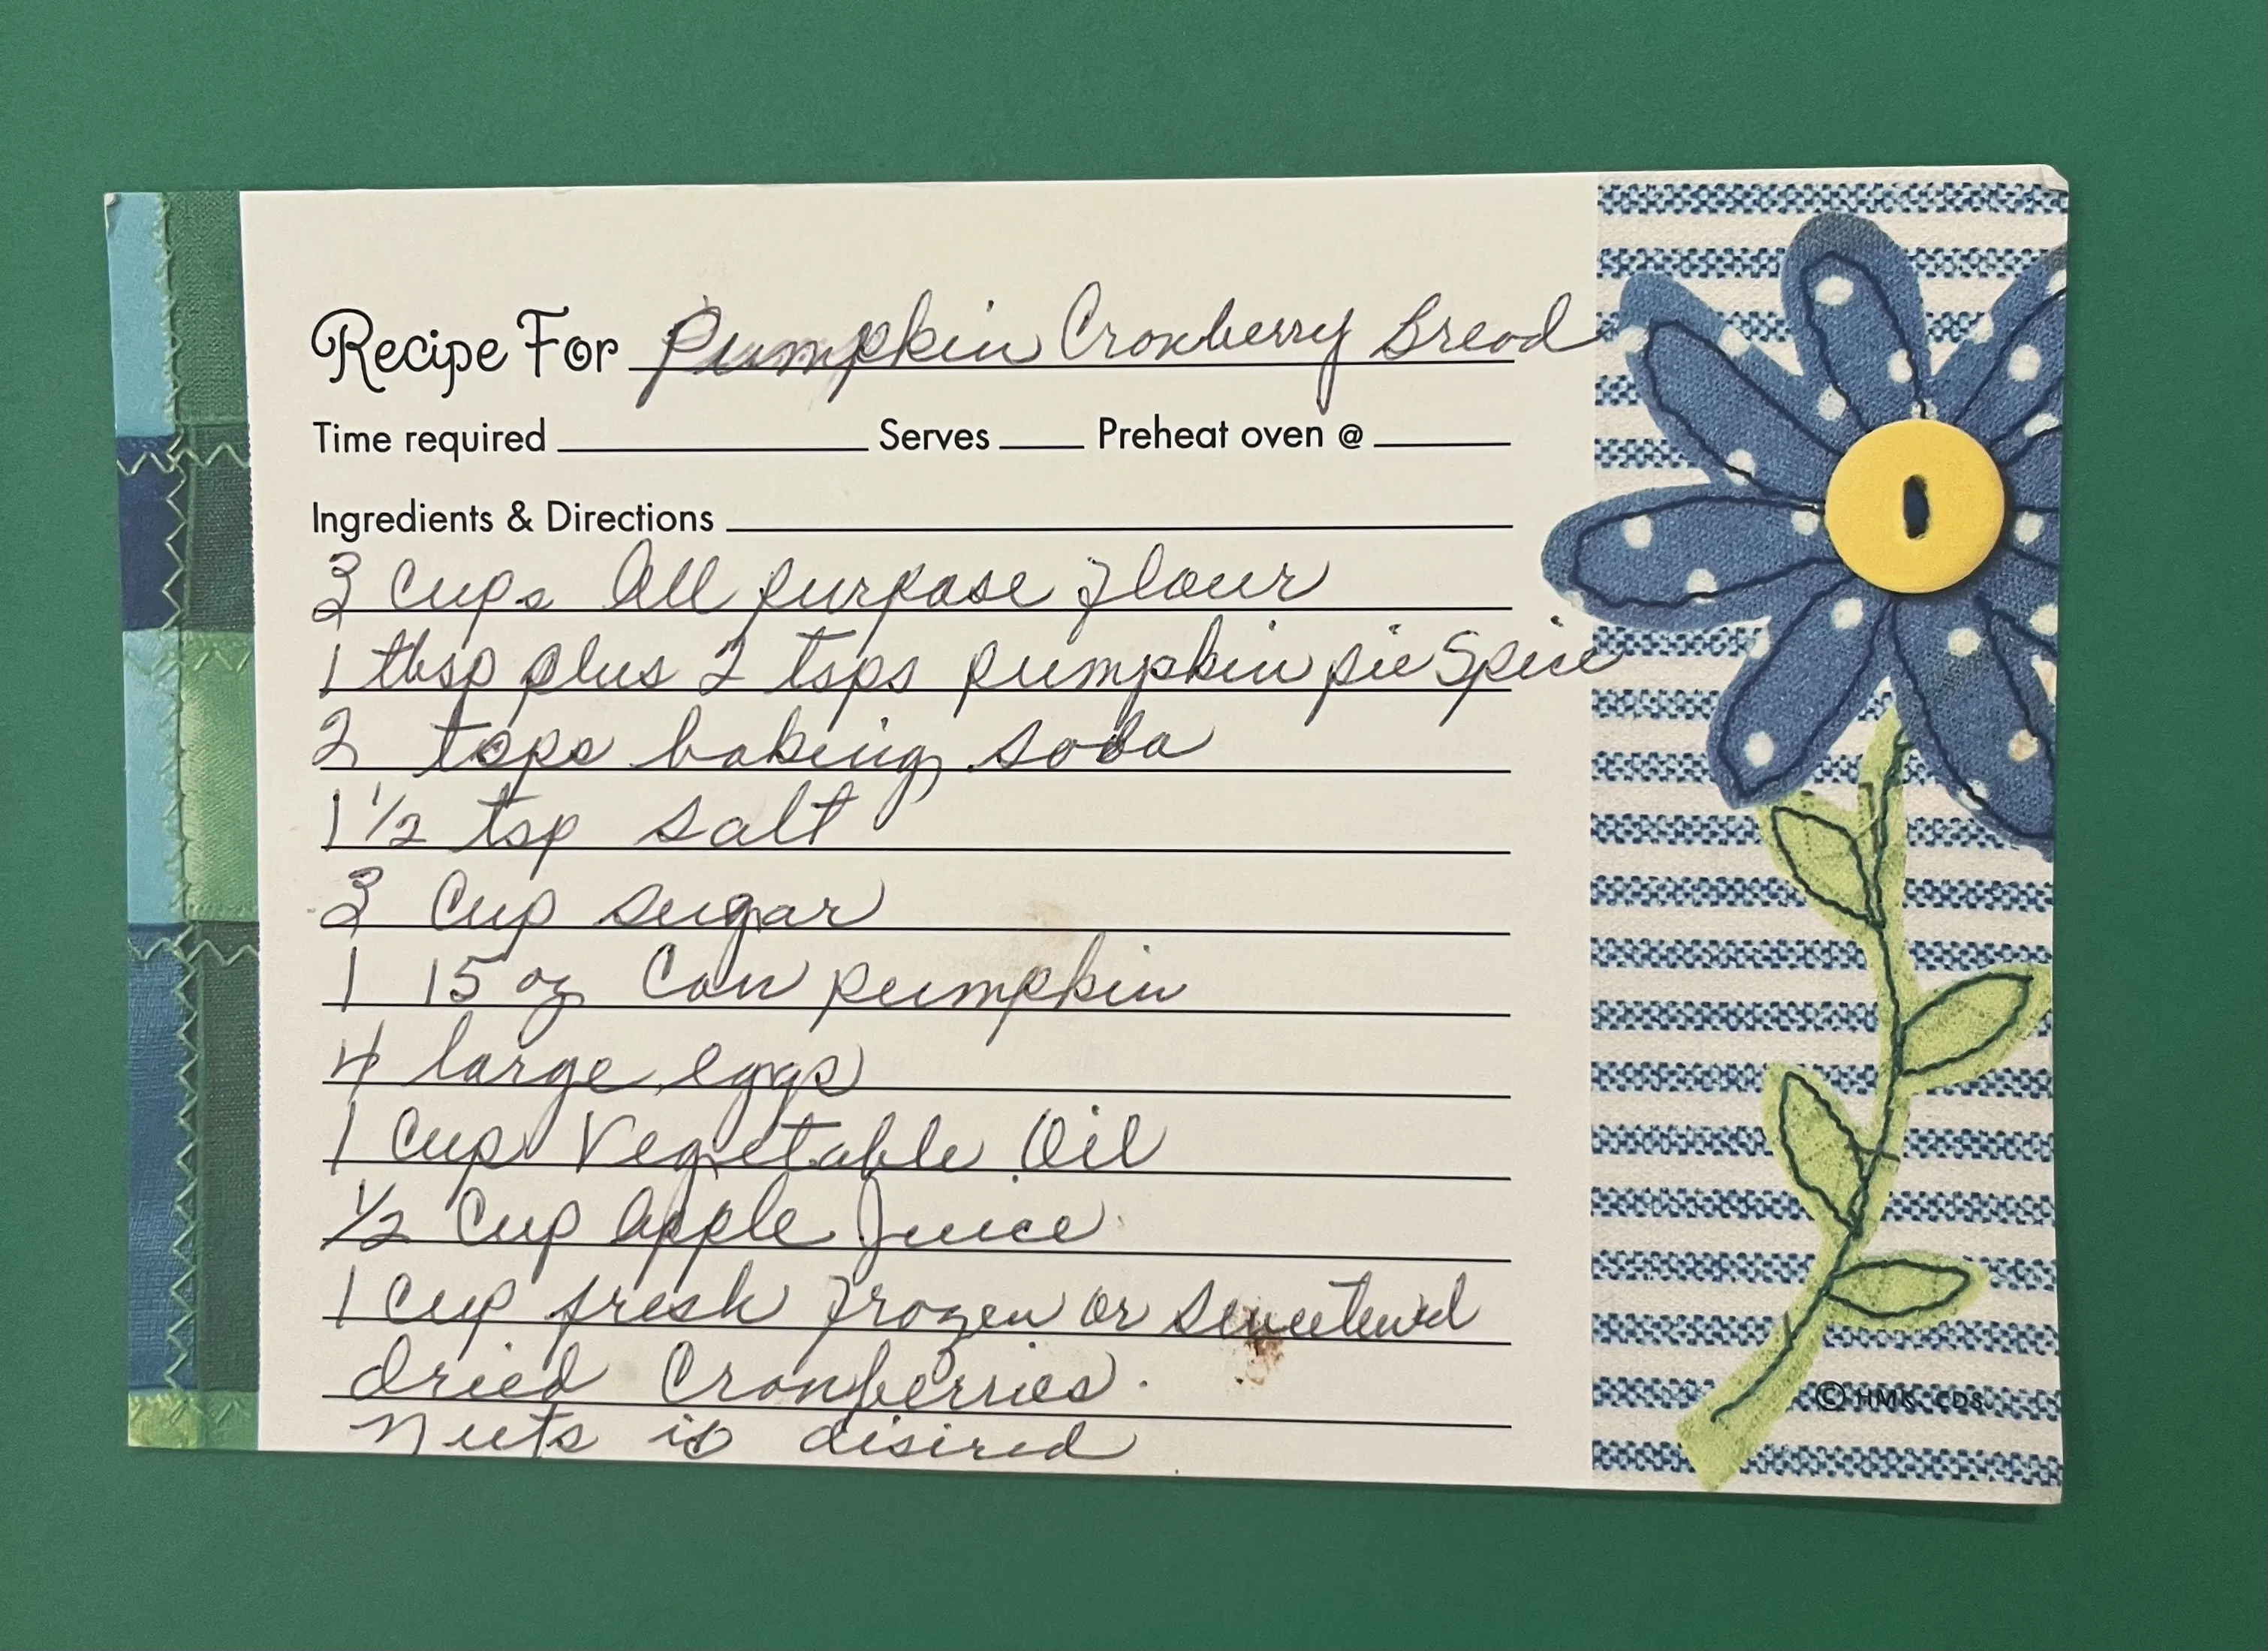 Recipe For Pumpkin Cranberry Bread
Time required Serves Preheat oven @
Ingredients & Directions
3 Cups All purpose flour
1 tbsp plus 2 tsps pumpkin pie Spice
2 tsps baking soda
1 1/2 tsp salt
3 Cup sugar
1 15 oz Can pumpkin
4 large eggs
1 Cup Vegetable Oil
1/2 Cup apple Juice
1 Cup fresh frozen or sweetened
dried Cranberries.
Nuts is disired
© HMK. CDS.